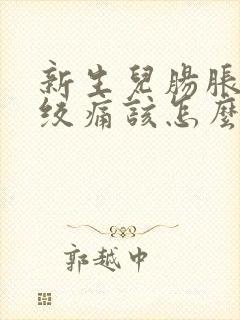 新生兒腸脹
絞痛該怎麼
郭越中